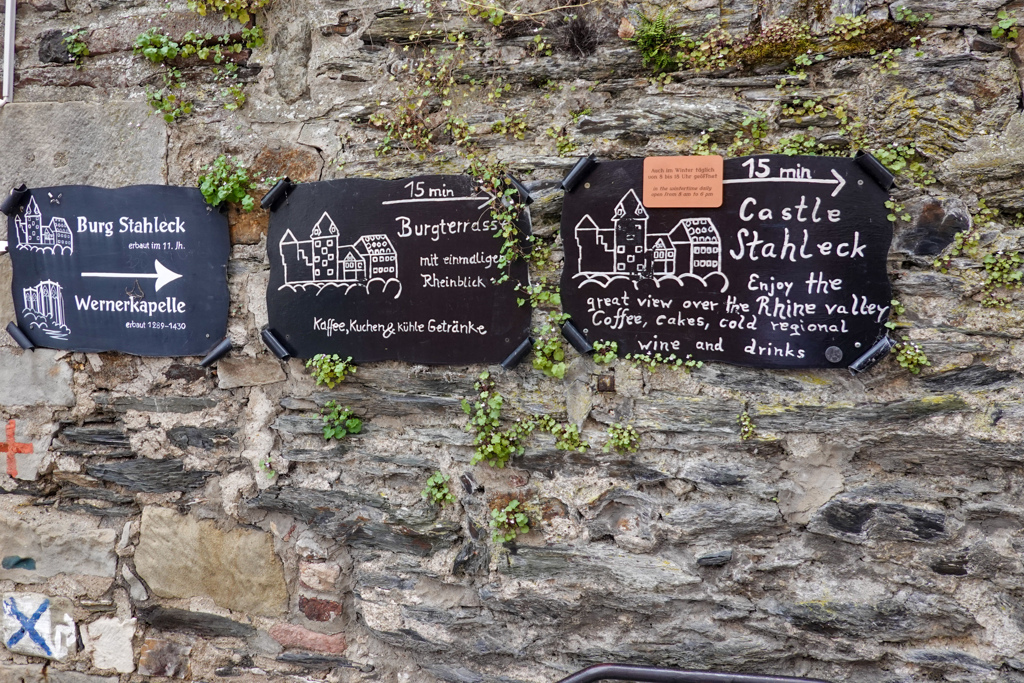 Burg Stahleck
erbaut im 11. Jh.
Wernerkapelle
erbaut 1289-1430
15 min
Burgterrass
mit einmaligen
Rheinblick
Kaffee, Kuchen & kühle Getränke
Auch im Winter täglich
von 8 bis 18 Uhr geöffnet
in the wintertime daily
open from 8 am to 6 pm
15 min
Castle
Stahleck
Enjoy the
great view over the Rhine valley
Coffee, cakes, cold regional
wine and drinks